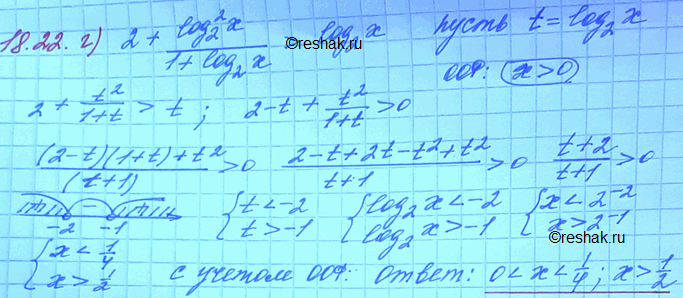 18.22. г) 2 + log₂²x / (1 + log₂x) log₂x пусть t = log₂x
©reshak.ru
ООФ: x>0
2 + t²/(1+t) > t ; 2-t + t²/(1+t) > 0
((2-t)(1+t)+t²)/(t+1) > 0 (2-t+2t-t²+t²)/(t+1) > 0 (t+2)/(t+1) > 0
-2 - -1 { t<-2 t>-1 { log₂x<-2 log₂x>-1 { x<2⁻² x>2⁻¹
{ x<1/4 x>1/2 с учетом ООФ: ответ: 0<x<1/4; x>1/2
©reshak.ru